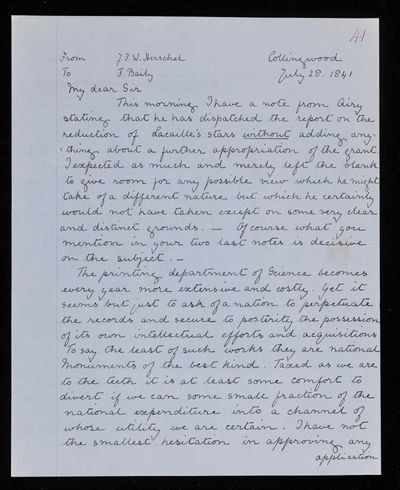 41
From J. F. W. Herschel Collingwood
To F. Baily July 28. 1841
My dear Sir
This morning I have a note from Airy
stating that he has dispatched the report on the
reduction of Lacaille's stars without adding any-
-thing about a further appropriation of the grant.
I expected as much and merely left the blank
to give room for any possible view which he might
take of a different nature but which he certainly
would not have taken except on some very clear
and distinct grounds. — Of course what you
mention in your two last notes is decisive
on the subject. —
The printing department of Science becomes
every year more extensive and costly. Yet it
seems but just to ask of a nation to perpetuate
the records and secure to posterity the possession
of its own intellectual efforts and acquisitions
To say the least of such works they are national
Monuments of the best kind. Taxed as we are
to the teeth it is at least some comfort to
divert if we can some small fraction of the
national expenditure into a channel of
whose utility we are certain. I have not
the smallest hesitation in approving any
application